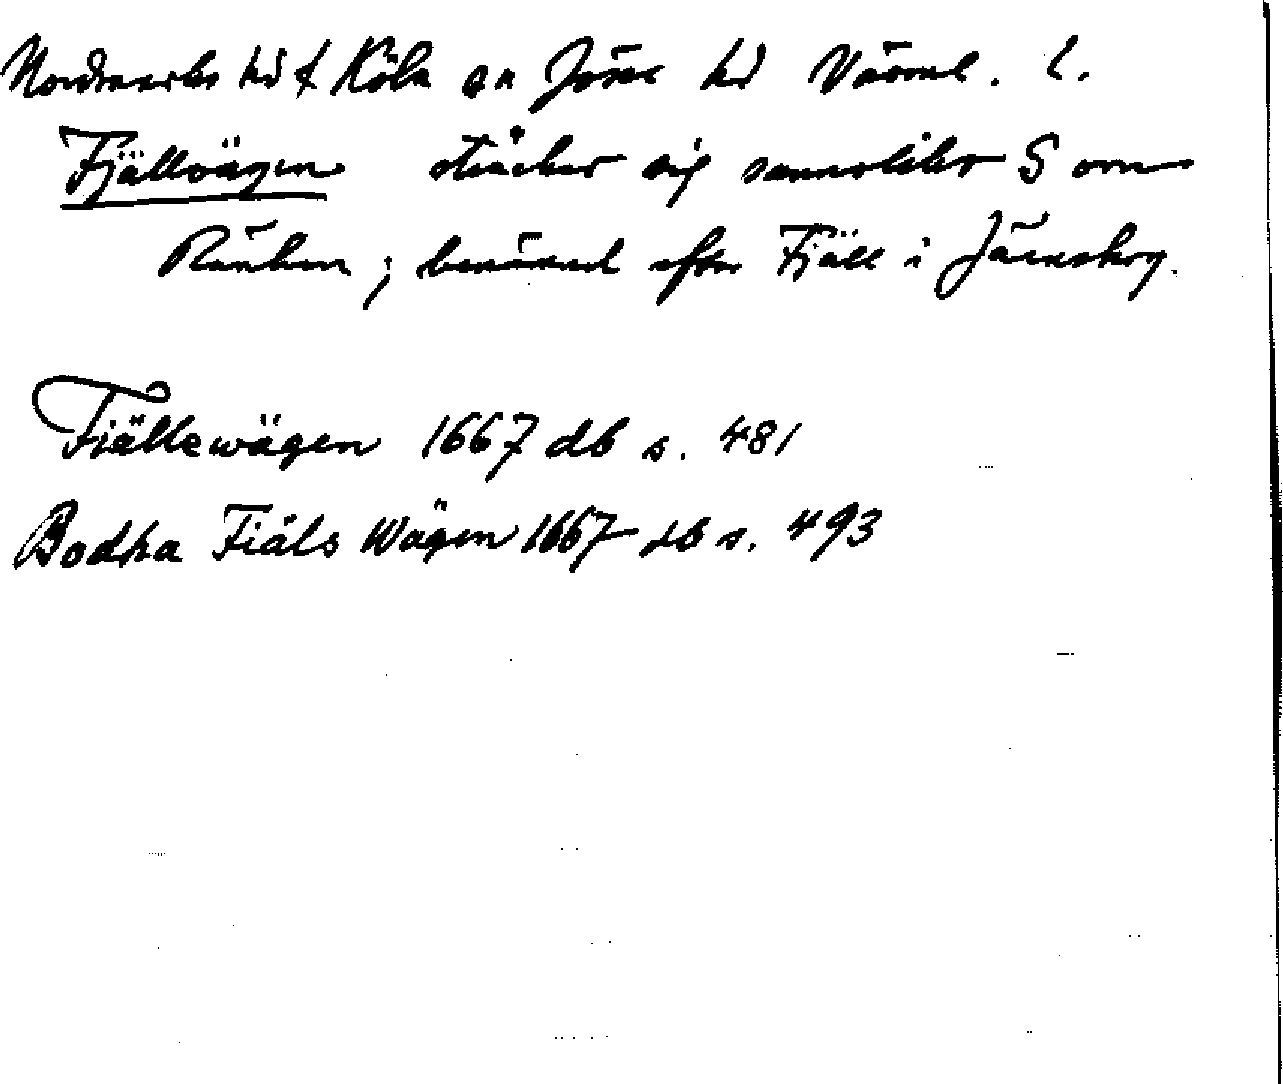 Nordmarks hd f Köla sn Jösse hd Värml. l.
Fjällvägen sträcker sig sannolikt S om
Ränken; benämnd efter Fjäll i Järnskog.
Fiällewägen 1667 db s. 481
Bodha Fiäls Wägen 1667 db s. 493